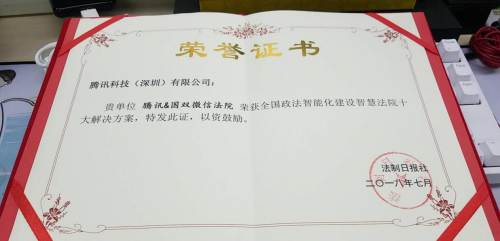 荣誉证书
腾讯科技（深圳）有限公司：
贵单位 腾讯&国双微信法院 荣获全国政法智能化建设智慧法院十
大解决方案，特发此证，以资鼓励。
法制日报社
二〇一八年七月